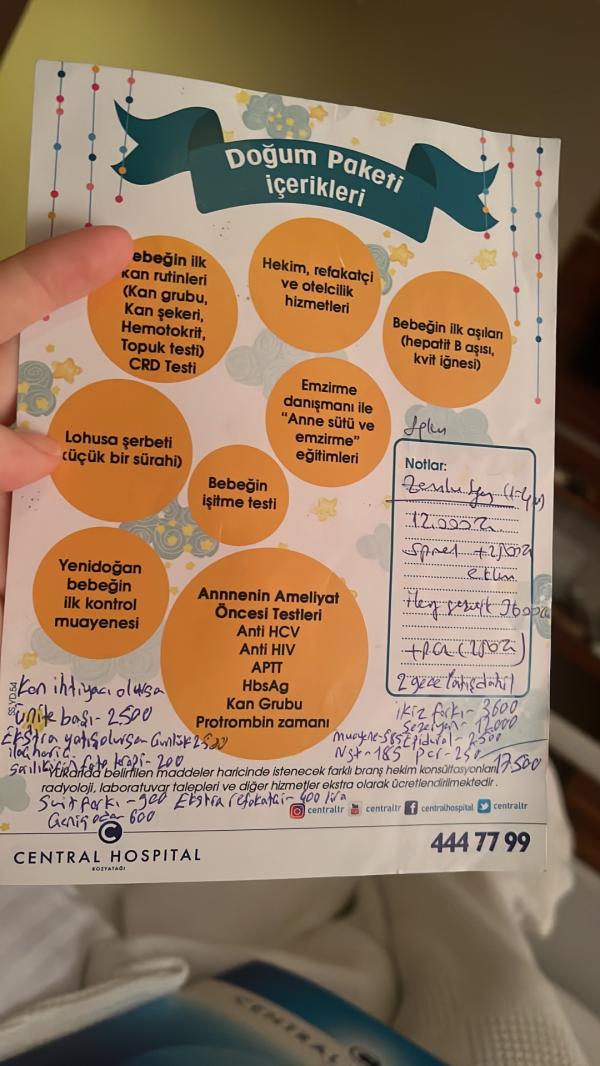 Doğum Paketi
içerikleri
ebeğin ilk
kan rutinleri
(Kan grubu,
Kan şekeri,
Hemotokrit,
Topuk testi)
CRD Testi
Hekim, refakatçi
ve otelcilik
hizmetleri
Bebeğin ilk aşıları
(hepatit B aşısı,
kvit iğnesi)
Lohusa şerbeti
küçük bir sürahi)
Emzirme
danışmanı ile
"Anne sütü ve
emzirme"
eğitimleri
Bebeğin
işitme testi
Yenidoğan
bebeğin
ilk kontrol
muayenesi
Annnenin Ameliyat
Öncesi Testleri
Anti HCV
Anti HIV
APTT
HbsAg
Kan Grubu
Protrombin zamanı
Notlar:
12.000
+PCR
2 gece yatış dahil
Kan ihtiyacı olursa
ünite başı - 2500
Ekstra yatış olursa Günlük 2500
ilaç hariç
sarılık için foto terapi - 200
Suit farkı - 900 Ekstra refakatçi - 400 lira
Geniş oda 600
ikiz farkı - 3600
Sezeryan - 12000
muayene - 585 Epidural - 2500
Nst - 185 pcr - 250
17.500
Yukarıda belirtilen maddeler haricinde istenecek farklı branş hekim konsültasyonları,
radyoloji, laboratuvar talepleri ve diğer hizmetler ekstra olarak ücretlendirilmektedir.
centraltr centraltr centralhospital centraltr
CENTRAL HOSPITAL
KOZYATAĞI
444 77 99
CENTRAL